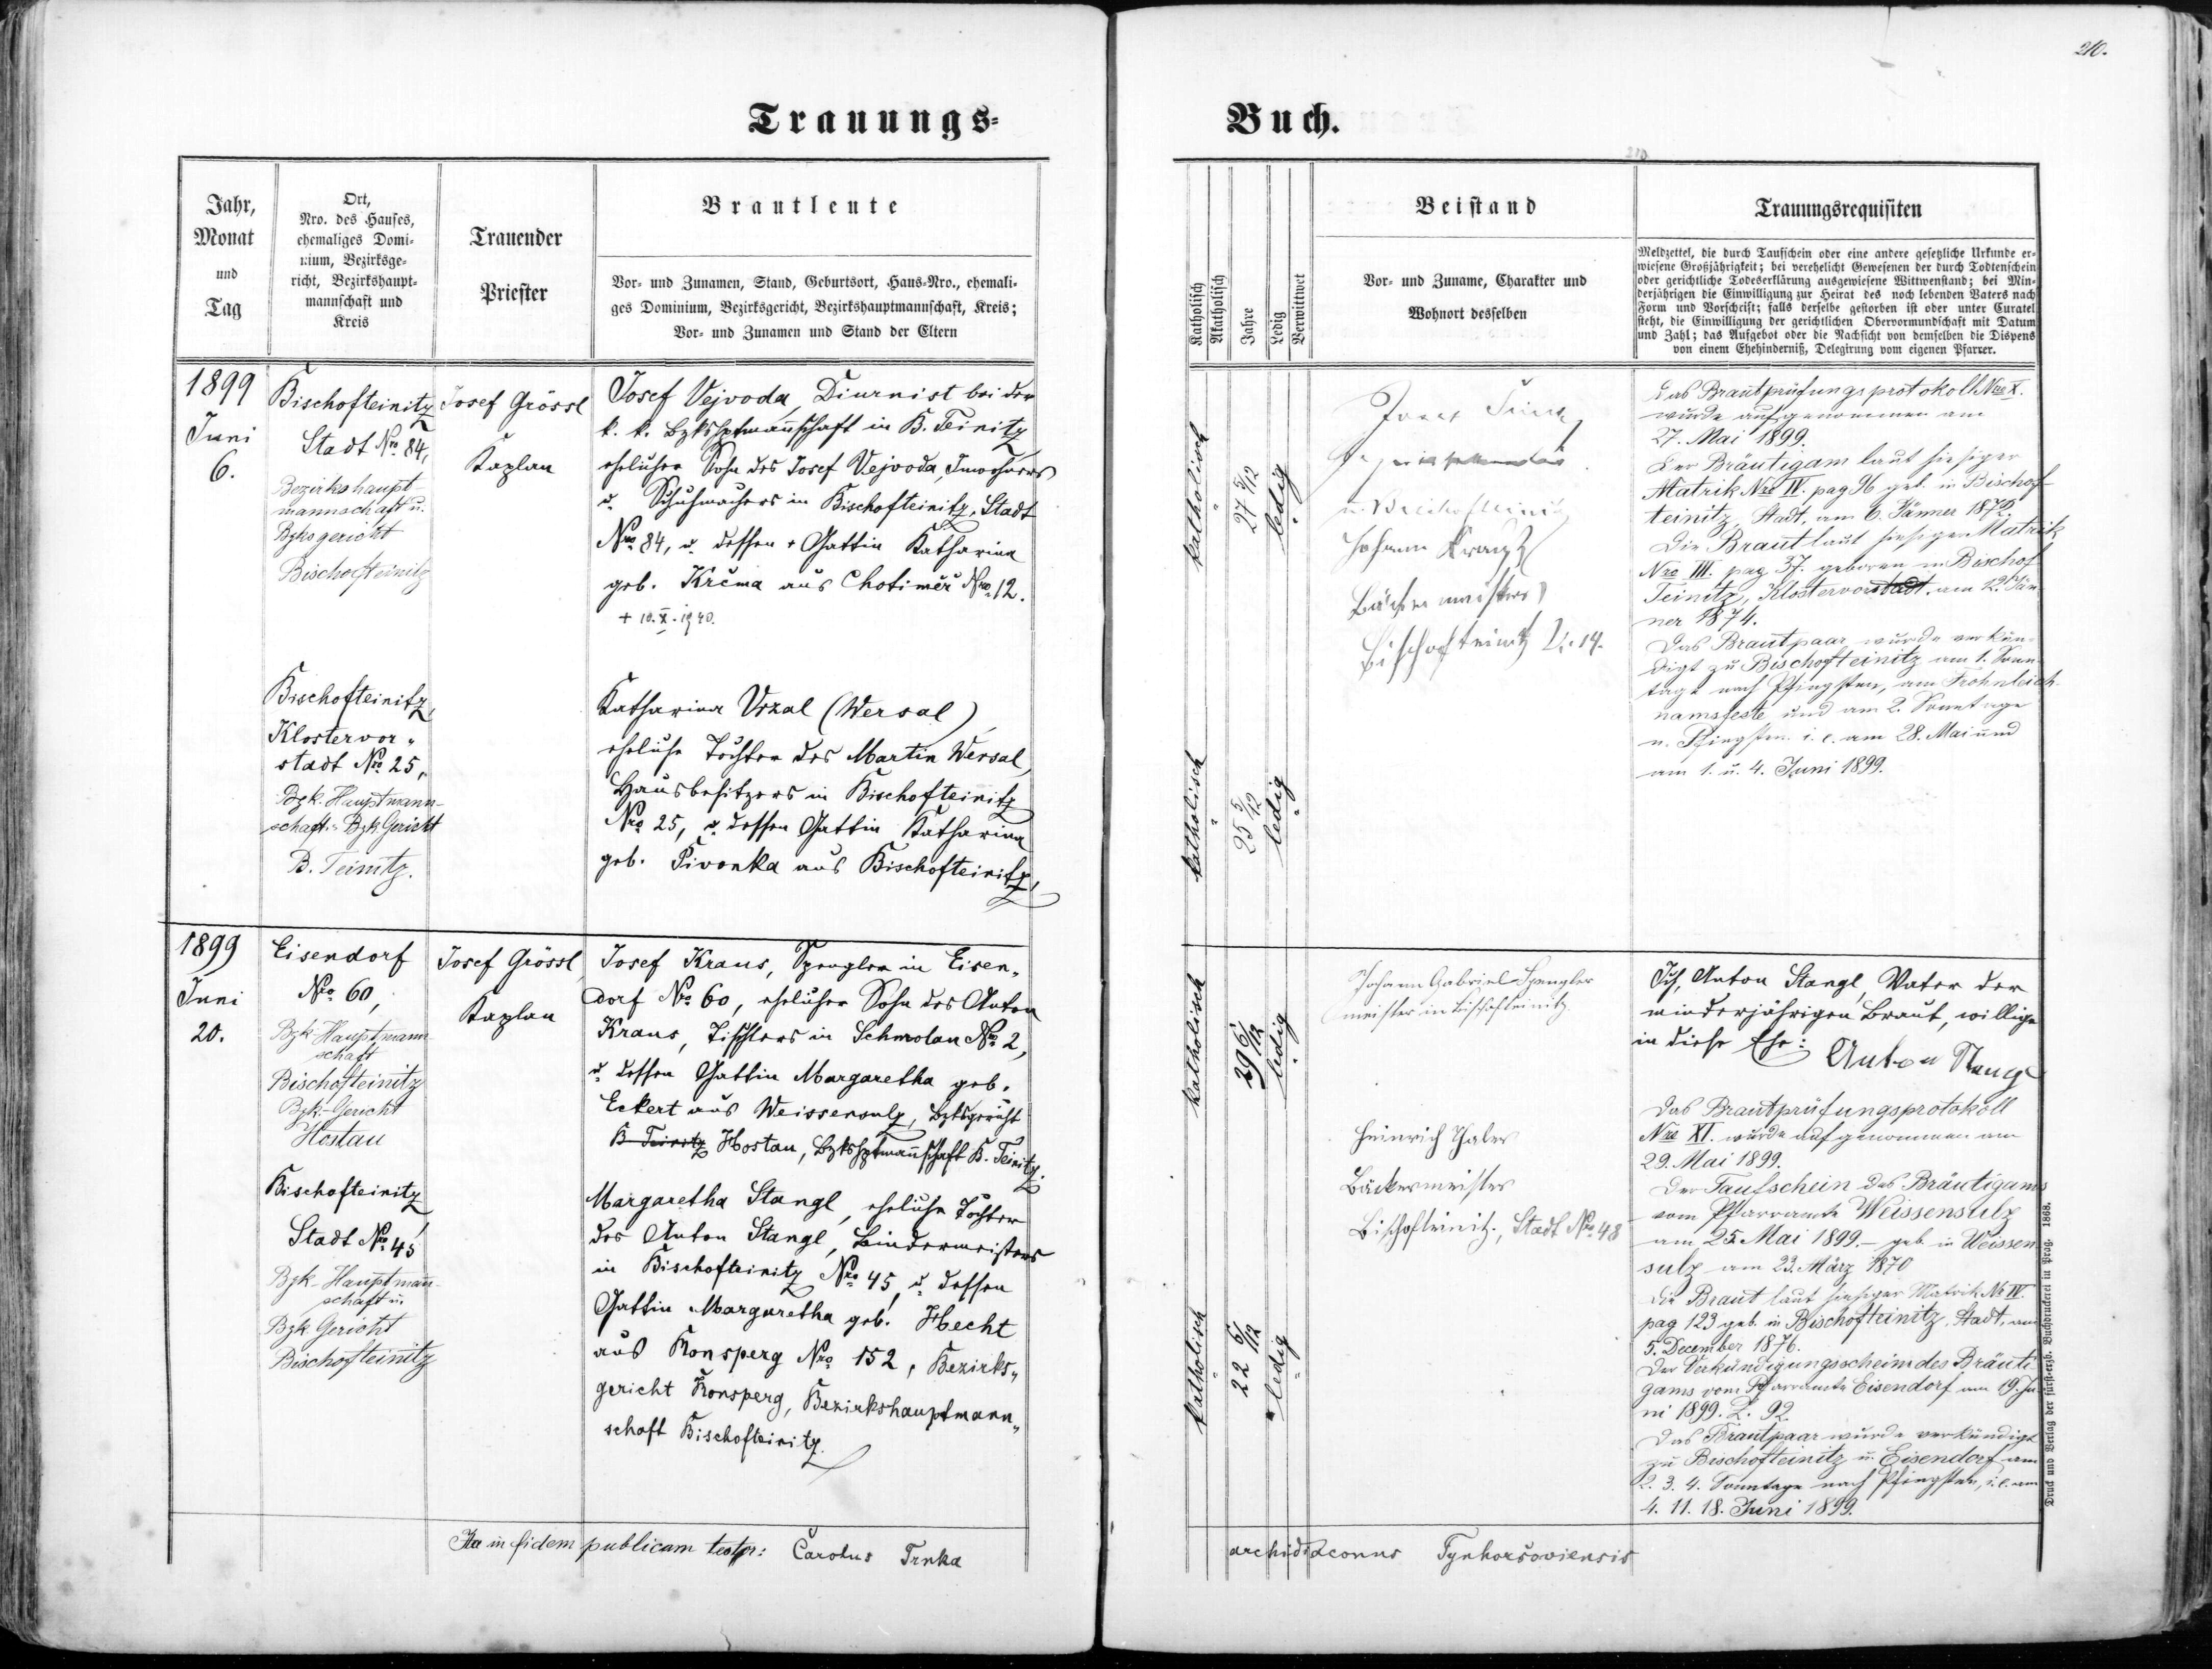 210.
Trauungs=
Buch.
210
Jahr,
Monat
und
Tag
Ort,
Nro. des Hauses,
ehemaliges Domi-
nium, Bezirksge-
richt, Bezirkshaupt-
mannschaft und
Kreis
Trauender
Priester
Brautleute
Vor- und Zunamen, Stand, Geburtsort, Haus-Nro., ehemali-
ges Dominium, Bezirksgericht, Bezirkshauptmannschaft, Kreis;
Vor- und Zunamen und Stand der Eltern
Katholisch
Akatholisch
Jahre
Ledig
Verwittwet
Beistand
Vor- und Zuname, Charakter und
Wohnort desselben
Trauungsrequisiten
Meldzettel, die durch Taufschein oder eine andere gesetzliche Urkunde er-
wiesene Großjährigkeit; bei verehelicht Gewesenen der durch Todtenschein
oder gerichtliche Todeserklärung ausgewiesene Wittwenstand; bei Min-
derjährigen die Einwilligung zur Heirat des noch lebenden Vaters nach
Form und Vorschrift; falls derselbe gestorben ist oder unter Curatel
steht, die Einwilligung der gerichtlichen Obervormundschaft mit Datum
und Zahl; das Aufgebot oder die Nachsicht von demselben die Dispens
von einem Ehehinderniß, Delegirung vom eigenen Pfarrer.
1899
Juni
6.
Bischofteinitz
Stadt Nro 84,
Bezirkshaupt-
mannschaft u.
Bzksgericht
Bischofteinitz
Josef Grössl
Kaplan
Josef Vejvoda, Diurnist bei der
k. k. Bzkshptmannschaft in B. Teinitz
ehelicher Sohn des Josef Vejvoda, Inwohners
u. Schuhmachers in Bischofteinitz, Stadt
Nro 84, u. dessen + Gattin Katharina
geb. Krčma aus Chotiměř Nro 12.
+ 10. X. 1940.
Bischofteinitz,
Klostervor„
stadt Nro 25,
Bzk. Hauptmann-
schaft u. Bzk Gericht
B. Teinitz.
Katharina Vrzal (Wersal)
eheliche Tochter des Martin Wersal,
Hausbesitzers in Bischofteinitz
Nro 25, u. dessen Gattin Katharina
geb. Pivonka aus Bischofteinitz,
katholisch
27 5/12
ledig
katholisch
25 5/12
ledig
Josef
in Bischofteinitz
Johann Krautz
Bäckermeister
Bischofteinitz N. 14.
Das Brautprüfungsprotokoll Nro X.
wurde aufgenommen am
27. Mai 1899.
Der Bräutigam laut hiesiger
Matrik Nro IV. pag 96 geb. in Bischof
teinitz, Stadt, am 6. Jänner 1872.
Die Braut laut hiesiger Matrik
Nro III. pag 37. geboren in Bischof
Teinitz, Klostervorstadt, am 12. Jän
ner 1874.
Das Brautpaar wurde verkün-
digt zu Bischofteinitz am 1. Sonn
tage nach Pfingsten, am Frohnleich-
namsfeste und am 2. Sonntage
n. Pfingsten i. e. am 28. Mai und
am 1. u. 4. Juni 1899.
1899
Juni
20.
Eisendorf
Nro 60,
Bzk-Hauptmann
schaft
Bischofteinitz
Bzk.-Gericht
Hostau
Josef Grössl
Kaplan
Josef Kraus, Spengler in Eisen„
dorf Nro 60, ehelicher Sohn des Anton
Kraus, Tischlers in Schmolau Nro 2,
u. dessen Gattin Margaretha geb.
Eckert aus Weissensulz, Bzksgericht
B. Teinitz Hostau, Bzkshptmannschaft B. Teinitz.
Bischofteinitz
Stadt Nro 45
Bzk-Hauptman
schaft u.
Bzk Gericht
Bischofteinitz
Margaretha Stangl, eheliche Tochter
des Anton Stangl, Bindermeisters
in Bischofteinitz Nro 45, u. dessen
Gattin Margaretha geb. Hecht
aus Ronsperg Nro 152, Bezirks„
gericht Ronsperg, Bezirkshauptmann„
schaft Bischofteinitz.
katholisch
29 6/12
ledig
katholisch
22 6/12
ledig
Johann Gabriel Spengler
meister in Bischofteinitz
Heinrich Thaler
Bäckermeister
Bischofteinitz, Stadt No 48
Ich, Anton Stangl, Vater der
minderjährigen Braut, willige
in diese Ehe:
Anton Stangl
Das Brautprüfungsprotokoll
Nro XI. wurde aufgenommen am
29. Mai 1899.
Der Taufschein des Bräutigams
vom Pfarramte Weissensulz
am 25. Mai 1899. - geb. in Weissen
sulz am 23. März 1870
Die Braut laut hiesiger Matrik No IV.
pag 123 geb. in Bischofteinitz, Stadt, am
5. December 1876.
Der Verkündigungsschein des Bräuti
gams vom Pfarramte Eisendorf am 19. Ju
ni 1899. Z. 92.
Das Brautpaar wurde verkündigt
zu Bischofteinitz u. Eisendorf am
2. 3. 4. Sonntage nach Pfingsten, i. e. am
4. 11. 18. Juni 1899.
Ita in fidem publicam testor: Carolus Trnka
archidiaconus Tynhoršoviensis
Druck und Verlag der fürst-erzb. Buchdruckerei in Prag. 1868.